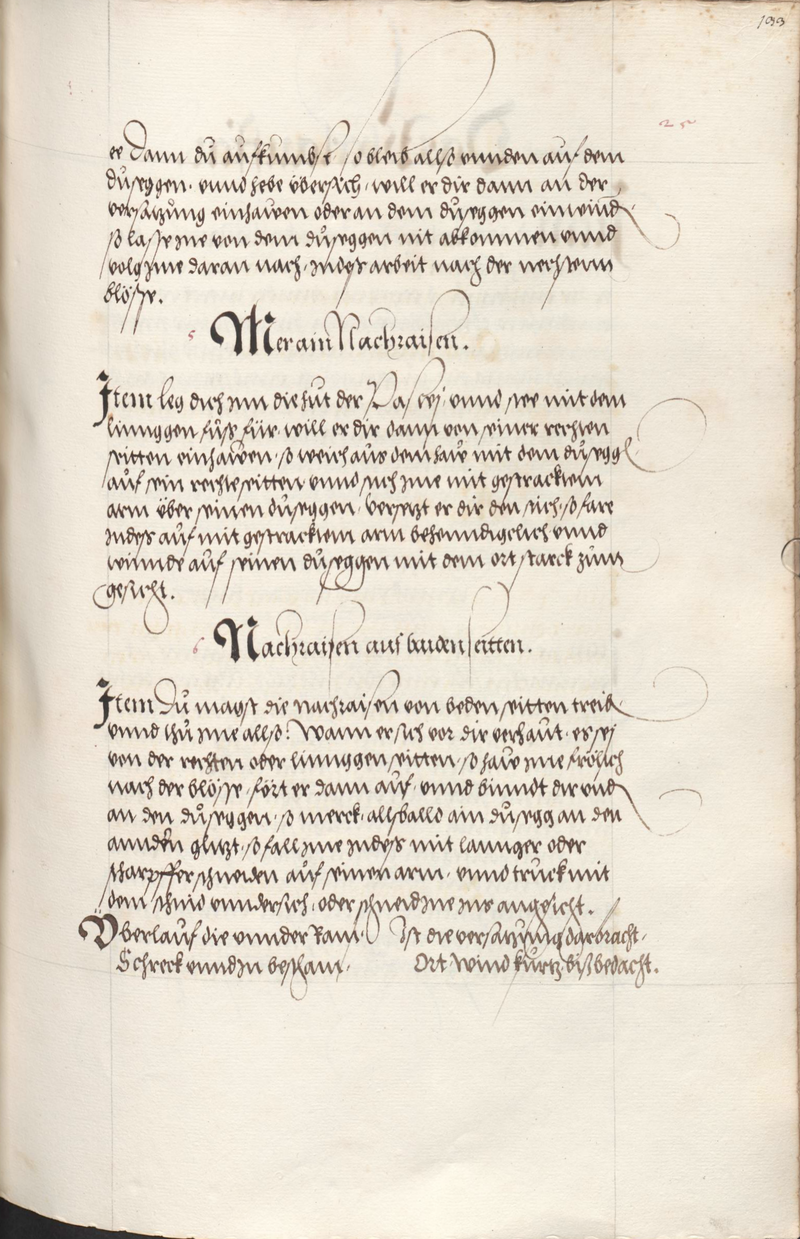 133
25
ee Dann du aufkumbst so bleib allso vnnden auf dem
duseggen. vnnd hebe vbersich, will er dir dann an der
versatzung einhawen oder an dem duseggen einwind
so lass jne von dem duseggen nit abkommen vnnd
volg jme daran nach, Jndes arbeit nach der nechsten
blösse.
5 Mer ain Nachraisen.
Jtem leg dich jnn die hut der Pastej, vnnd stee mit dem
linnggen fuss für, will er dir dann von seiner rechten
seitten einhawen, so weich aus dem haw mit dem dusegg
auf sein rechte seitten vnnd stich jme mit gestracktem
arm vber seinen duseggen, Versetzt er dir den stich, so fare
Jndes auf mit gestracktem arm behenndigclich vnnd
winnde auf seinen duseggen mit dem ort starck zum
gesicht.
6 Nachraisen aus baiden seitten.
Jtem Du magst die nachraisen von beden seitten treib
vnnd thu jme allso: Wann er sich vor dir verhaut, es sej
von der rechten oder linnggen seitten, so haw jme frölich
nach der blösse, fört er dann auf, vnnd binndt dir vnd
an den duseggen, so merck, allsballd ain dusegg an den
anndern glitzt, so fall jme Jndes mit lannger oder
scharpffer schneiden auf seinen arm, vnnd truck mit
dem schnid vnndersich, oder schneid jne jns angesicht.
Vberlauf die vnnder kam, Ist die versatzung darbracht,
Schreck vnnd In bescham, Ort wind kurtz biss bedacht.